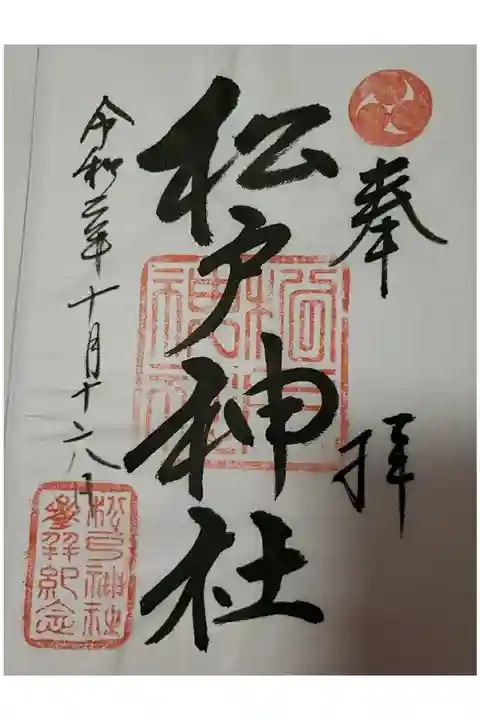 奉拝
松戸神社
令和二年十月十六日
松戸神社
松戸神社
参拝紀念